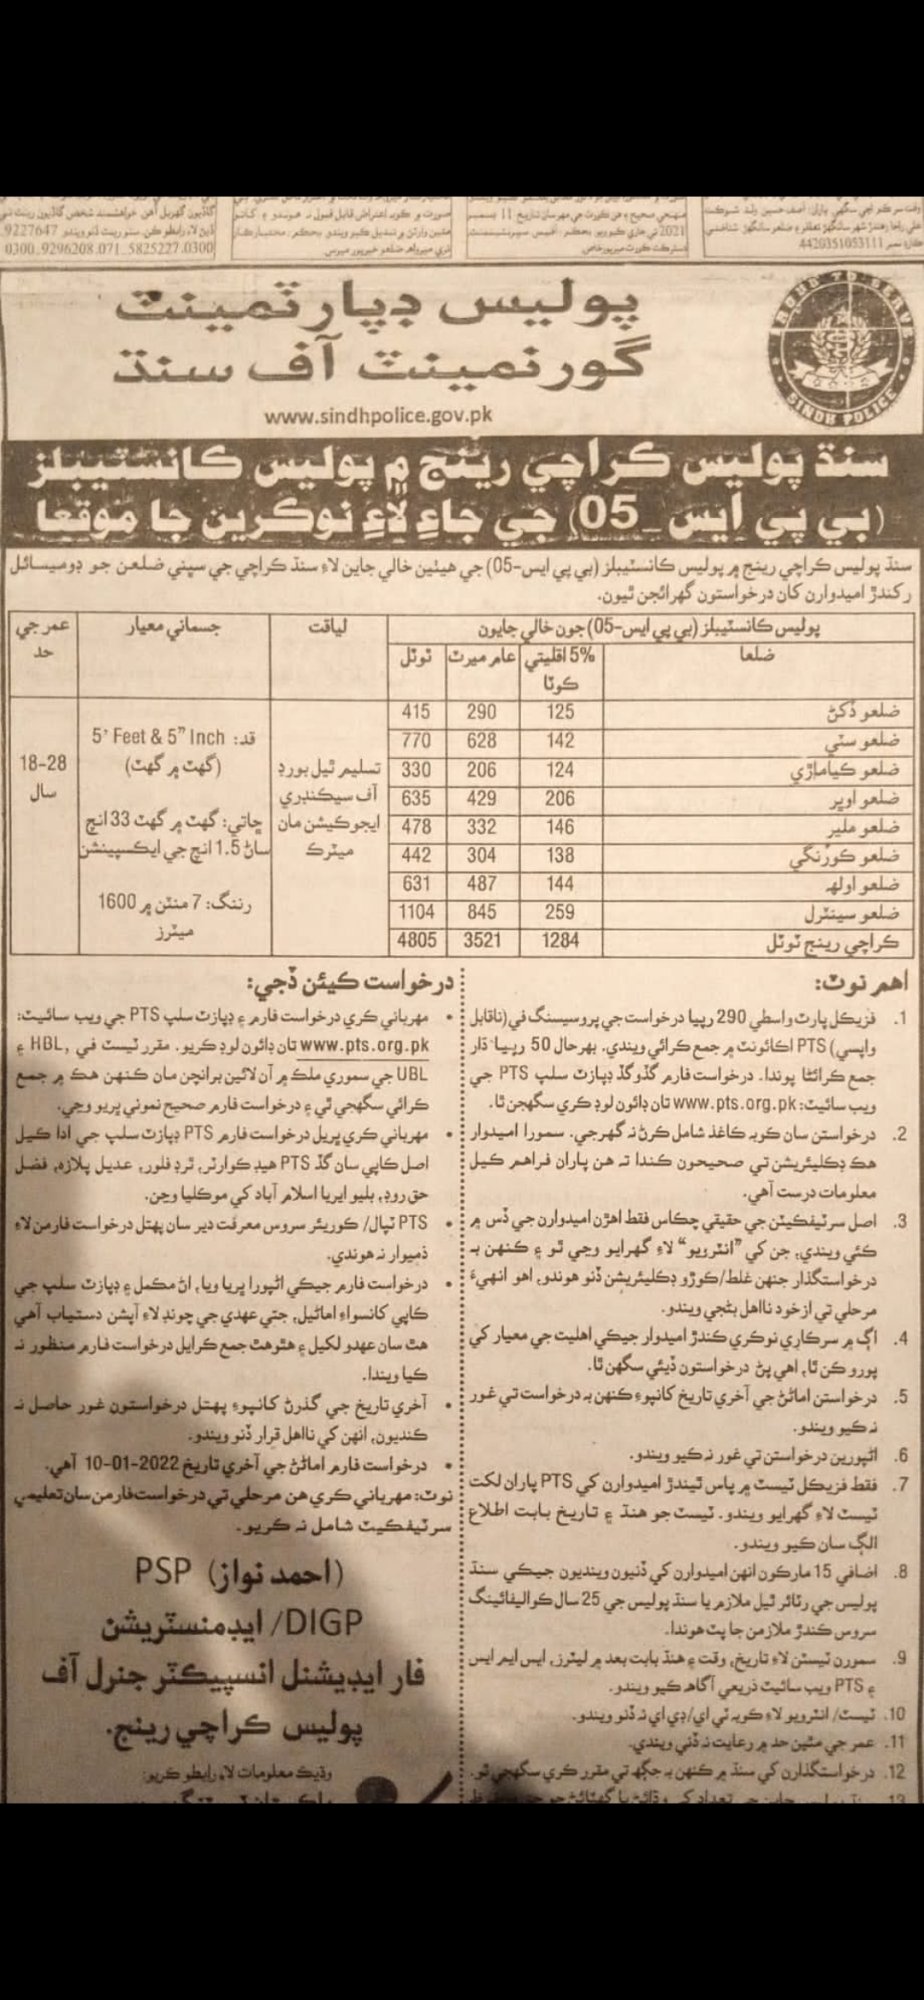 4420351053111
0300_9296208.071_5825227.0300
پوليس ڊپارٽمينٽ
گورنمينٽ آف سنڌ
SINDH POLICE
www.sindhpolice.gov.pk
سنڌ پوليس ڪراچي رينج ۾ پوليس ڪانسٽيبلز
(بي پي ايس _05) جي جاءِ لاءِ نوڪرين جا موقعا
سنڌ پوليس ڪراچي رينج ۾ پوليس ڪانسٽيبلز (بي پي ايس-05) جي هيٺين خالي جاين لاءِ سنڌ ڪراچي جي سڀني ضلعن جو ڊوميسائل
رکندڙ اميدوارن کان درخواستون گهرائجن ٿيون.
پوليس ڪانسٽيبلز (بي پي ايس-05) جون خالي جايون | لياقت | جسماني معيار | عمر جي حد
ضلعا | 5% اقليتي ڪوٽا | عام ميرٽ | ٽوٽل
ضلعو ڏکڻ 125 290 415
ضلعو سٽي 142 628 770
ضلعو ڪياماڙي 124 206 330
ضلعو اوڀر 206 429 635
ضلعو ملير 146 332 478
ضلعو ڪورنگي 138 304 442
ضلعو اولهه 144 487 631
ضلعو سينٽرل 259 845 1104
ڪراچي رينج ٽوٽل 1284 3521 4805
تسليم ٿيل بورڊ
آف سيڪنڊري
ايجوڪيشن مان
ميٽرڪ
قد: 5' Feet & 5" Inch
(گهٽ ۾ گهٽ)
ڇاتي: گهٽ ۾ گهٽ 33 انچ
ساڻ 1.5 انچ جي ايڪسپينشن
رننگ: 7 منٽن ۾ 1600
ميٽرز
18-28
سال
اهم نوٽ:
1. فزيڪل پارٽ واسطي 290 رپيا درخواست جي پروسيسنگ في (ناقابل
واپسي) PTS اڪائونٽ ۾ جمع ڪرائي ويندي. بهرحال 50 رپيا ڌار
جمع ڪرائڻا پوندا. درخواست فارم گڏوگڏ ڊپازٽ سلپ PTS جي
ويب سائيٽ: www.pts.org.pk تان ڊائون لوڊ ڪري سگهجن ٿا.
2. درخواستن سان ڪوبہ ڪاغذ شامل ڪرڻ نہ گهرجي. سمورا اميدوار
هڪ ڊڪليئريشن تي صحيحون ڪندا تہ هن پاران فراهم ڪيل
معلومات درست آهي.
3. اصل سرٽيفڪيٽن جي حقيقي چڪاس فقط اهڙن اميدوارن جي ڏس ۾
ڪئي ويندي، جن کي "انٽرويو" لاءِ گهرايو وڃي ٿو ۽ ڪنهن بہ
درخواستگذار جنهن غلط/ڪوڙو ڊڪليئريشن ڏنو هوندو، اهو انهيءَ
مرحلي تي ازخود نااهل بڻجي ويندو.
4. اڳ ۾ سرڪاري نوڪري ڪندڙ اميدوار جيڪي اهليت جي معيار کي
پورو ڪن ٿا، اهي پڻ درخواستون ڏيئي سگهن ٿا.
5. درخواستن اماڻڻ جي آخري تاريخ کانپوءِ ڪنهن بہ درخواست تي غور
نہ ڪيو ويندو.
6. اڻپورين درخواستن تي غور نہ ڪيو ويندو.
7. فقط فزيڪل ٽيسٽ ۾ پاس ٿيندڙ اميدوارن کي PTS پاران لکت
ٽيسٽ لاءِ گهرايو ويندو. ٽيسٽ جو هنڌ ۽ تاريخ بابت اطلاع
الڳ سان ڪيو ويندو.
8. اضافي 15 مارڪون انهن اميدوارن کي ڏنيون وينديون جيڪي سنڌ
پوليس جي رٽائر ٿيل ملازم يا سنڌ پوليس جي 25 سال ڪواليفائينگ
سروس ڪندڙ ملازمن جا پٽ هوندا.
9. سمورن ٽيسٽن لاءِ تاريخ، وقت ۽ هنڌ بابت بعد ۾ ليٽرز، ايس ايم ايس
۽ PTS ويب سائيٽ ذريعي آگاهہ ڪيو ويندو.
10. ٽيسٽ/ انٽرويو لاءِ ڪوبہ ٽي اي/ڊي اي نہ ڏنو ويندو.
11. عمر جي مٿين حد ۾ رعايت نہ ڏني ويندي.
12. درخواستگذارن کي سنڌ ۾ ڪنهن بہ جڳهہ تي مقرر ڪري سگهجي ٿو.
درخواست ڪيئن ڏجي:
• مهرباني ڪري درخواست فارم ۽ ڊپازٽ سلپ PTS جي ويب سائيٽ:
www.pts.org.pk تان ڊائون لوڊ ڪريو. مقرر ٽيسٽ في HBL, ۽
UBL جي سموري ملڪ ۾ آن لائين برانچن مان ڪنهن هڪ ۾ جمع
ڪرائي سگهجي ٿي ۽ درخواست فارم صحيح نموني ڀريو وڃي.
• مهرباني ڪري ڀريل درخواست فارم PTS ڊپازٽ سلپ جي ادا ڪيل
اصل ڪاپي سان گڏ PTS هيڊ ڪوارٽر، ٿرڊ فلور، عديل پلازه، فضل
حق روڊ، بليو ايريا اسلام آباد کي موڪليا وڃن.
• PTS ٽپال/ ڪوريئر سروس معرفت دير سان پهتل درخواست فارمن لاءِ
ذميوار نہ هوندي.
• درخواست فارم جيڪي اڻپورا ڀريا ويا، اڻ مڪمل ۽ ڊپازٽ سلپ جي
ڪاپي کانسواءِ اماڻيل، جتي عهدي جي چونڊ لاءِ آپشن دستياب آهي
هٿ سان عهدو لکيل ۽ هٿوهٿ جمع ڪرايل درخواست فارم منظور نہ
ڪيا ويندا.
• آخري تاريخ جي گذرڻ کانپوءِ پهتل درخواستون غور حاصل نہ
ڪنديون، انهن کي نااهل قرار ڏنو ويندو.
• درخواست فارم اماڻڻ جي آخري تاريخ 10-01-2022 آهي.
نوٽ: مهرباني ڪري هن مرحلي تي درخواست فارمن سان تعليمي
سرٽيفڪيٽ شامل نہ ڪريو.
(احمد نواز) PSP
DIGP/ ايڊمنسٽريشن
فار ايڊيشنل انسپيڪٽر جنرل آف
پوليس ڪراچي رينج.
وڌيڪ معلومات لاءِ رابطو ڪريو: